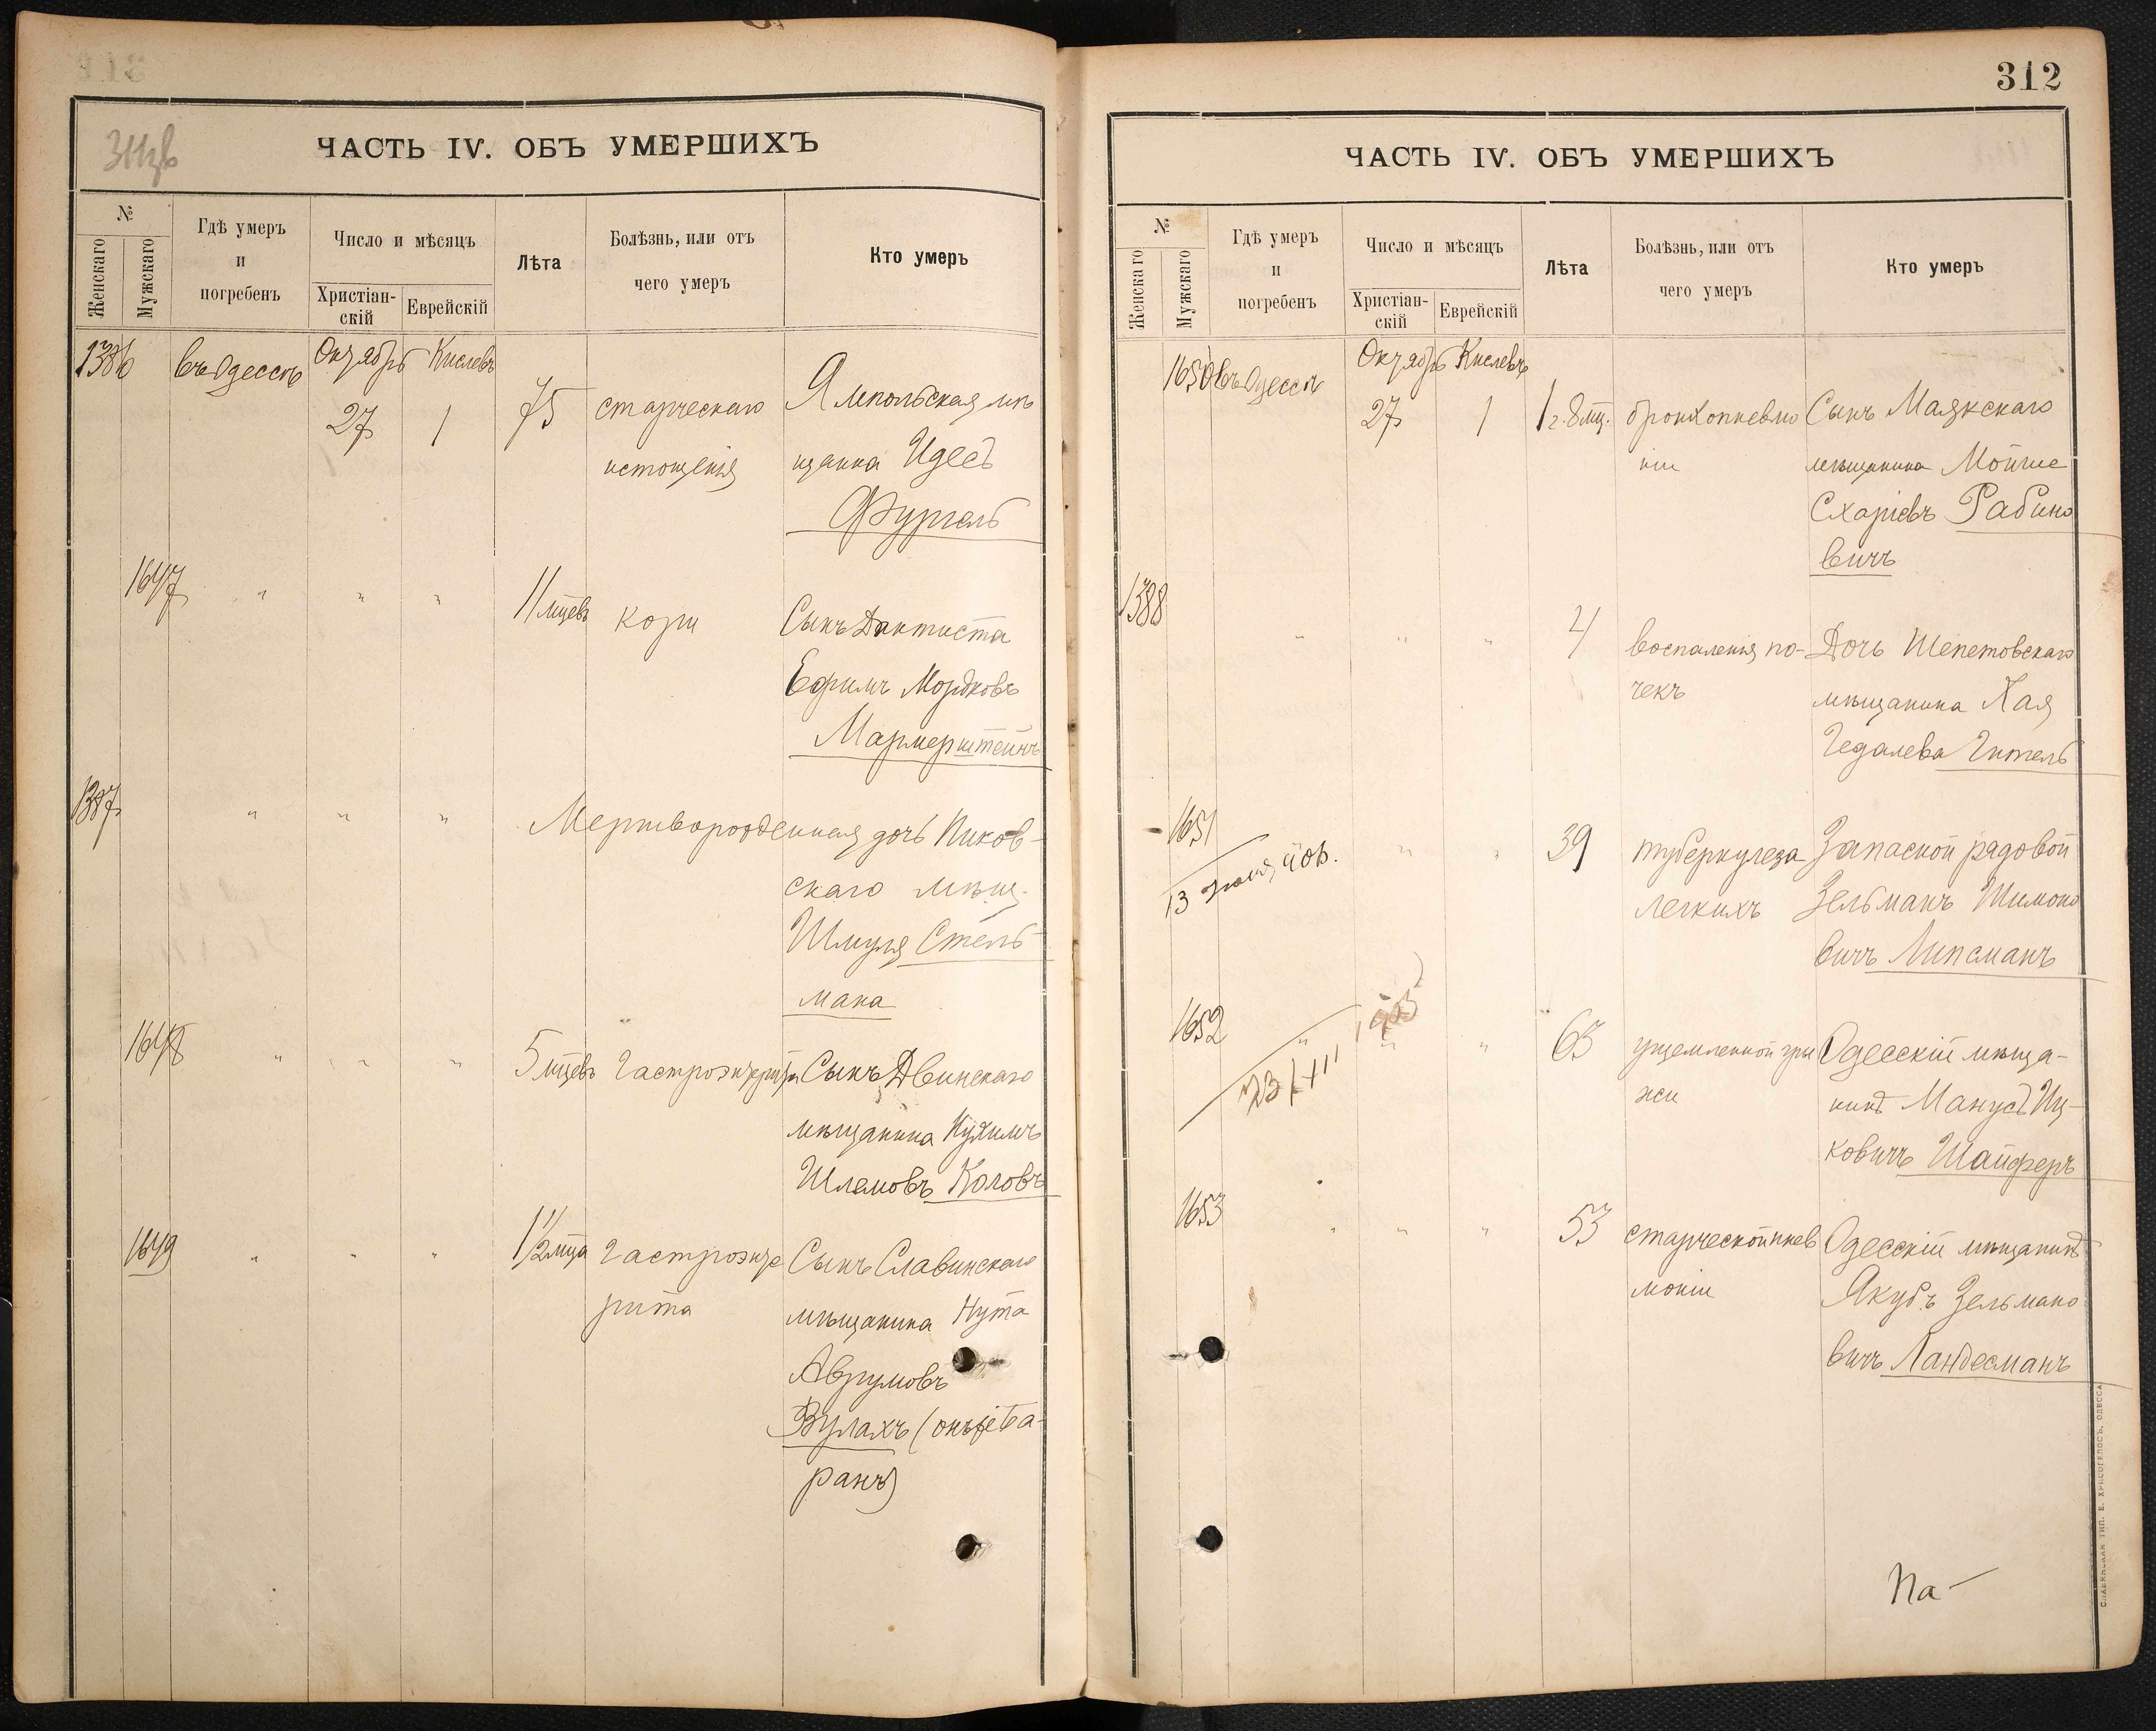 311об
ЧАСТЬ IV. ОБЪ УМЕРШИХЪ
№
Женскаго
Мужскаго
Гдѣ умеръ
и
погребенъ
Число и мѣсяцъ
Христіан-
скій
Еврейскій
Лѣта
Болѣзнь, или отъ
чего умеръ
Кто умеръ
1386 въ Одессѣ Октябрь Кислевъ
27 1 75 старческаго Ямпольская мѣ
истощенія щанка Идесъ
Фургель
1647 " " " 11 мцевъ кори Сынъ Дантиста
Ефимъ Мордковъ
Мармерштейнъ
1387 " " " Мертворожденная дочь Пиков-
скаго мѣщ.
Шмуля Стель-
маха
1648 " " " 5 мцевъ Гастроэнтерита Сынъ Двинскаго
мѣщанина
Шлемовъ Коловъ
1649 " " " 1 1/2 мца Гастроэнте Сынъ Славинскаго
рита мѣщанина Нута
Аврумовъ
Вулахъ (онъже Ба-
ранъ)
312
ЧАСТЬ IV. ОБЪ УМЕРШИХЪ
№
Женскаго
Мужскаго
Гдѣ умеръ
и
погребенъ
Число и мѣсяцъ
Христіан-
скій
Еврейскій
Лѣта
Болѣзнь, или отъ
чего умеръ
Кто умеръ
1650 въ Одессѣ Октябрь Кислевъ
27 1 1 г. 8 мц. бронхопневмо Сынъ Маякскаго
ніи мѣщанина Мойше
Схаріевъ Рабино
вичъ
1388 " " " 4 воспаленія по- Дочь Шепетовскаго
чекъ мѣщанина Хая
Гедалева Гитель
1651 " " 39 туберкулеза Запасной рядовой
13
легкихъ Зельманъ Шимоно
вичъ Липсманъ
1652 " " " 63 ущемленной гры Одесскій мѣща-
23/III
жи нинъ Манусъ Иц-
ковичъ Шайферъ
1653 " " " 53 старческой пнев Одесскій мѣщанинъ
моніи Якубъ Зельмано
вичъ Ландесманъ
На-
СЛАВЯНСКАЯ ТИП. Е. ХРИСОГЕЛОСЪ, ОДЕССА